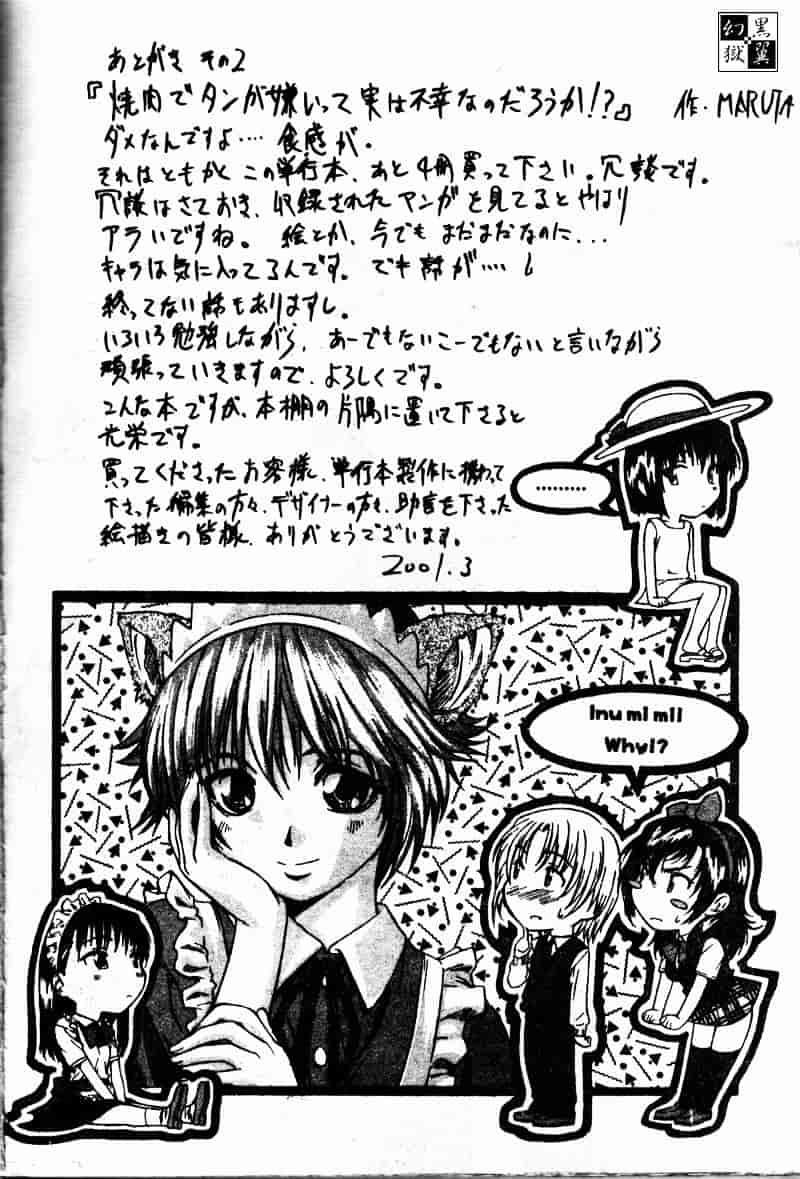 黒翼
幻獄
あとがき その2
『焼肉でタンが嫌いって実は不幸なのだろうか!?』 作・MARUTA
ダメなんですよ…. 食感が。
それはともかく この単行本、あと4冊買って下さい。冗談です。
冗談はさておき、収録されたマンガを見てるとやはり
アラいですね。 絵とか、今でも まだまだなのに...
キャラは気に入ってるんです。でも話が….
終ってない話もありますし。
いろいろ勉強しながら、あーでもないこーでもないと言いながら
頑張っていきますので、よろしくです。
こんな本ですが、本棚の片隅に置いて下さると
光栄です。
買ってくださったお客様、単行本製作に携わって
下さった編集の方々、デザイナーの方も、助言を下さった
絵描きの皆様、ありがとうございます。
2001.3
………
Inu mi mi!
Why!?